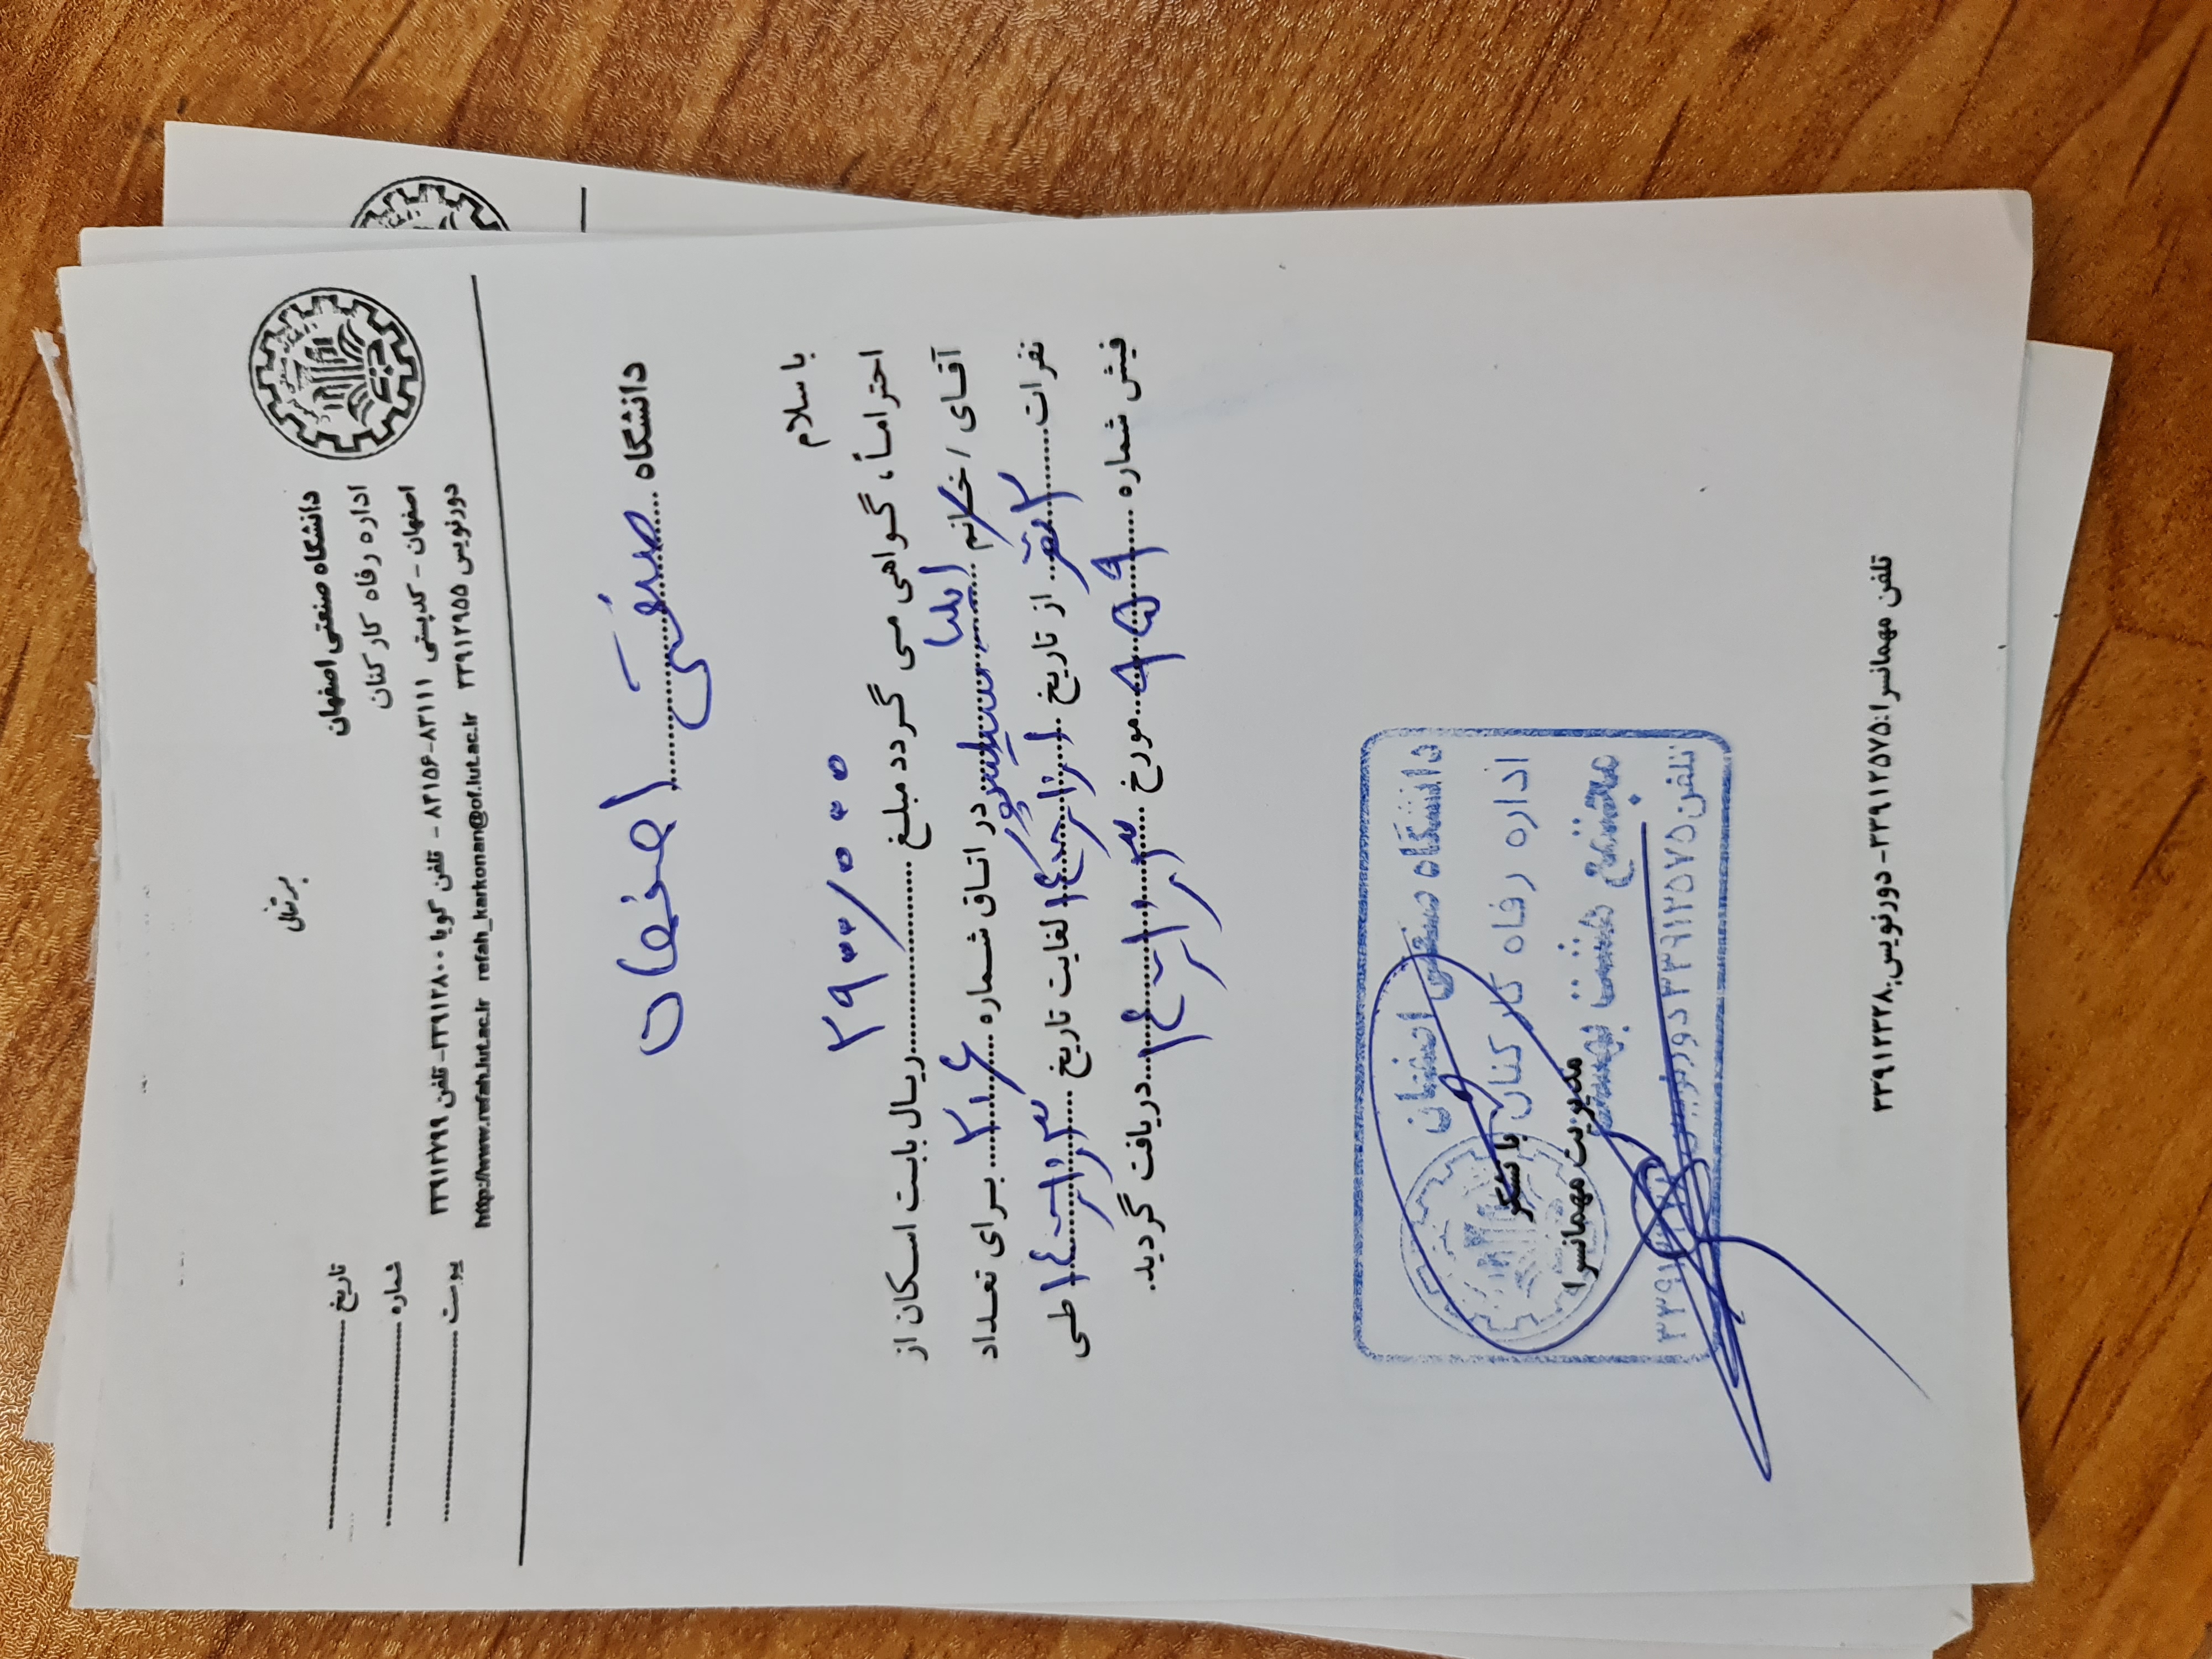 بسمه تعالی
دانشگاه صنعتی اصفهان
اداره رفاه کارکنان
اصفهان - کدپستی ۸۳۱۱۱-۸۴۱۵۶ - تلفن گویا ۳۳۹۱۲۸۰۰- تلفن ۳۳۹۱۲۷۹۹
دورنویس ۳۳۹۱۲۹۵۵ refah_karkonan@of.iut.ac.ir http://www.refah.iut.ac.ir
تاریخ
شماره
پیوست
دانشگاه صنعتی اصفهان
با سلام
احتراماً، گواهی می گردد مبلغ ۲۹۰۰/۰۰۰ ریال بابت اسکان از
آقای / خانم ایلیا در اتاق شماره ۲۱۶ برای تعداد
نفرات ۲ نفر از تاریخ لغایت تاریخ طی
فیش شماره ۹۵۹ مورخ دریافت گردید.
دانشگاه صنعتی اصفهان
اداره رفاه کارکنان
مجتمع هشت بهشت
تلفن ۳۳۹۱۲۵۷۵ دورنویس
با تشکر
مدیریت مهمانسرا
تلفن مهمانسرا:۳۳۹۱۲۵۷۵- دورنویس:۳۳۹۱۲۳۲۸